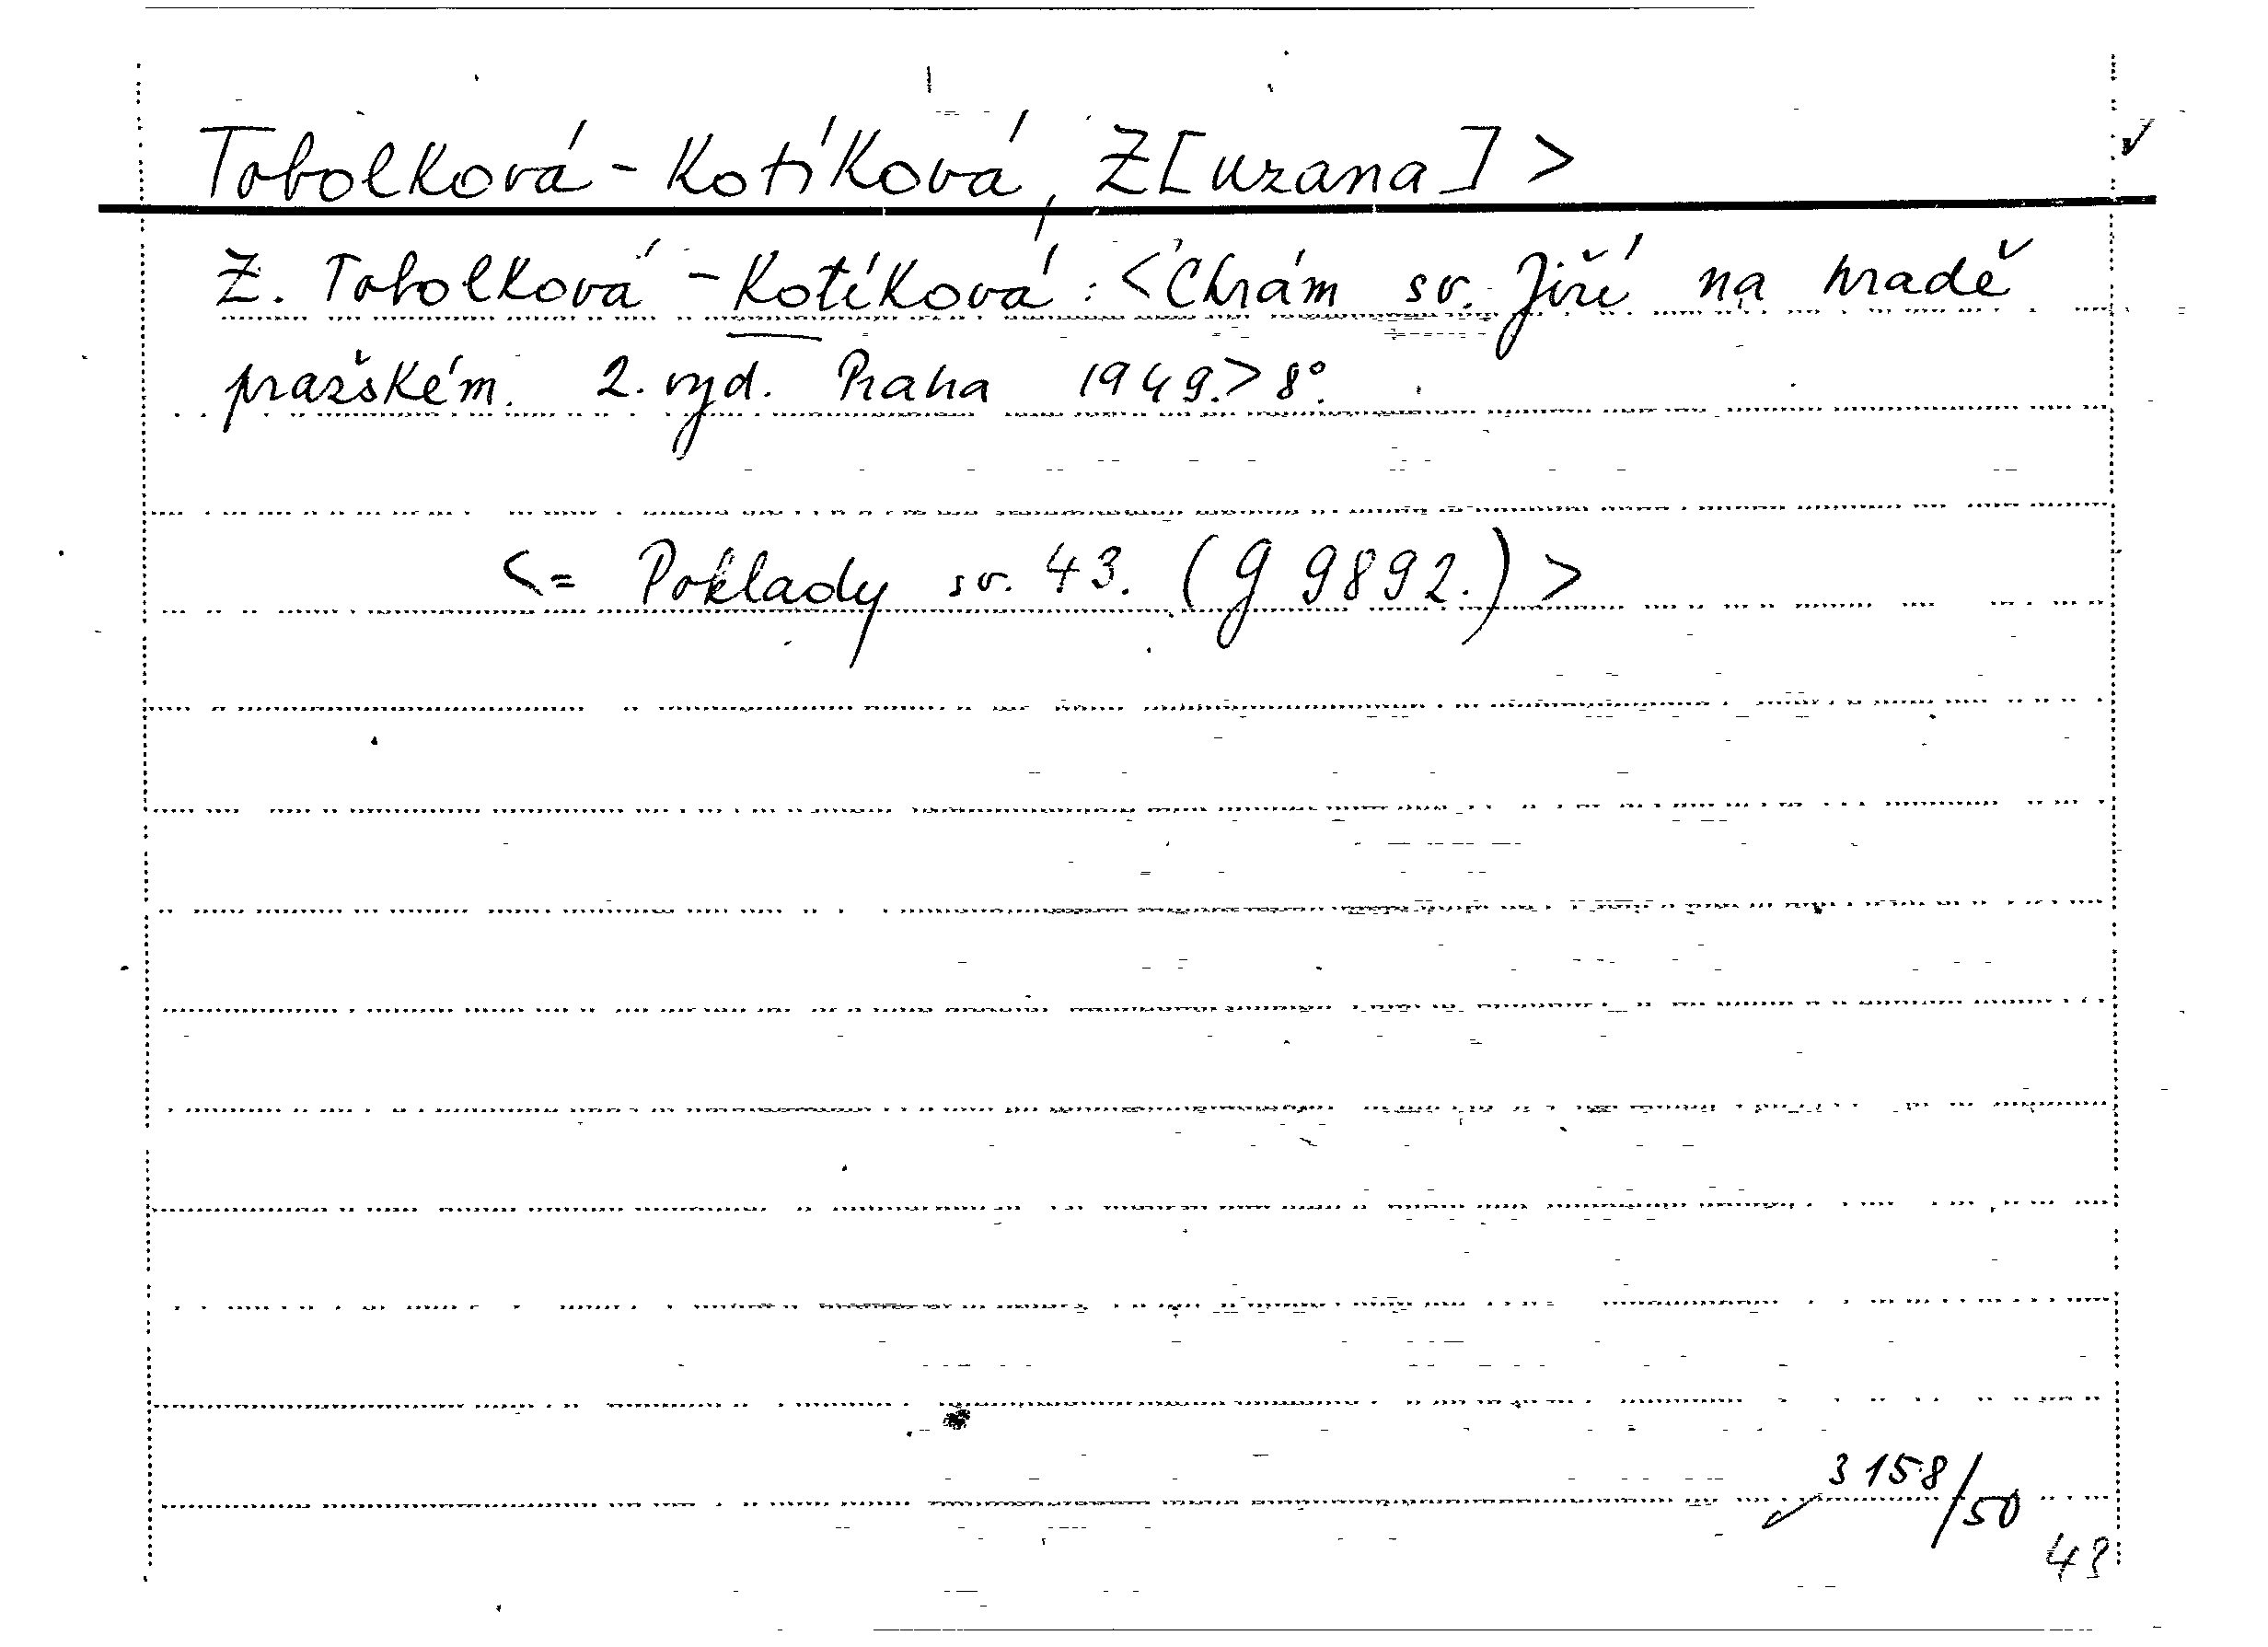 Tobolková-Kotíková, Z[uzana]>
Z. Tobolková-Kotíková: <Chrám sv. Jiří na hradě
pražském. 2. vyd. Praha 1949.> 8°.
<= Poklady sv. 43. (g 9892.)>
3158/50